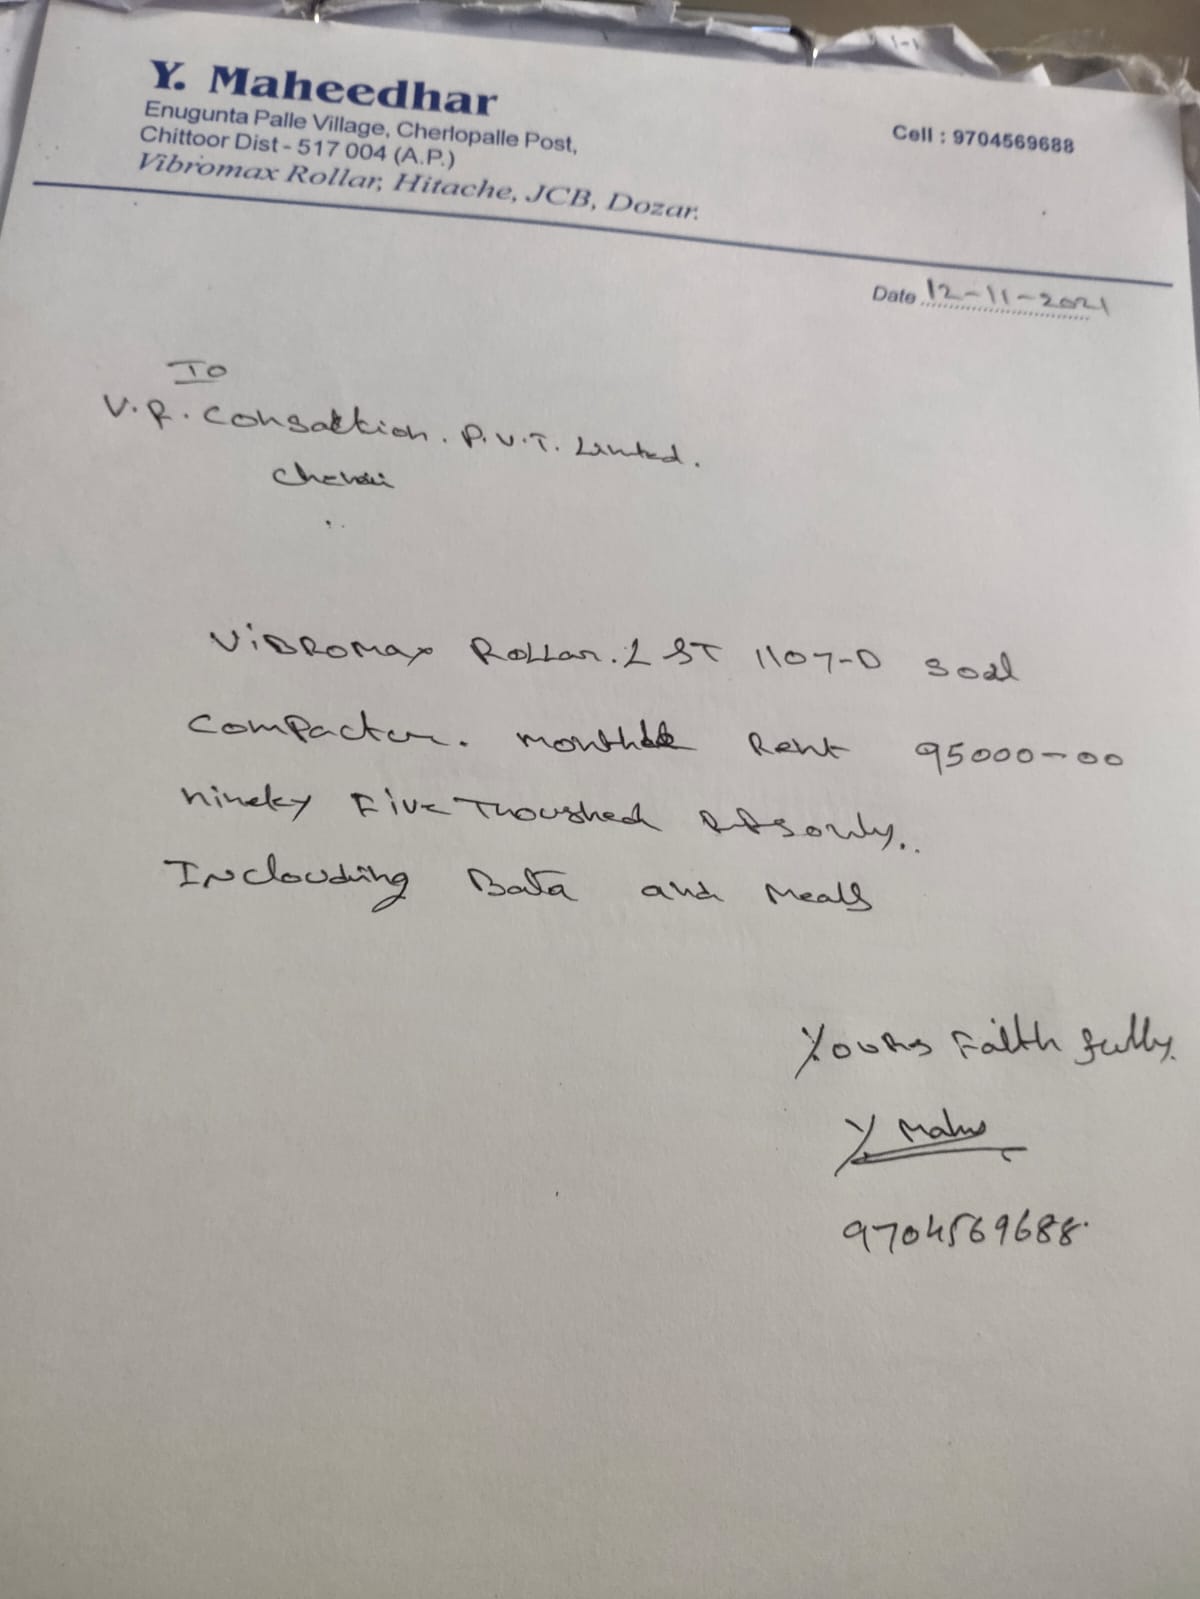 Y. Maheedhar
Enugunta Palle Village, Cherlopalle Post,
Chittoor Dist - 517 004 (A.P.)
Vibromax Rollar, Hitache, JCB, Dozar.
Cell : 9704569688
Date 12-11-2021
To
V.R. Consaltion. P.V.T. Limted.
Chenai
ViBROMax Rollar. L&T 1107-D Soal
Compacter. Rent 95000-00
ninety Five Thoushed only..
Inclouding Bata and Meals
Yours Faith fully.
Y Mahee
9704569688.